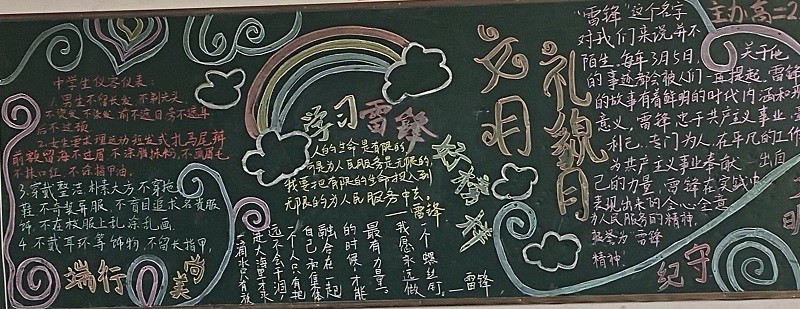 中学生仪容仪表:
1.男生不留长发,不剃光头
后不过颈
前额留海不过眉 不涂脂抹粉,不画眉毛
不抹口红,不涂指甲油。
3.穿戴整洁 朴素大方 不穿拖
鞋 不奇装异服 不盲目追求名贵服
饰 不在校服上乱涂乱画
4.不戴耳环等饰物,不留长指甲,
端行
尚美
学习雷锋
人的生命是有限的,
可是为人民服务是无限的,
我要把有限的生命投入到
无限的为人民服务中去。
——雷锋
好榜样
一个螺丝钉。
我愿永远做
——雷锋
最有力量。
的时候,才能
融合在一起
自己和集体
一个人只有把
远不会干涸,
走大海里才永
一滴水只有放
文明
礼貌月
主办高二2
"雷锋"这个名字
对我们来说并不
陌生。每年3月5日,关于他
的事迹都会被人们一再提起。雷锋
的故事有着鲜明的时代内涵和现
意义,雷锋 忠于共产主义事业
利己、专门为人,在平凡的工作
为共产主义事业奉献 出自
己的力量,雷锋在实践中
表现出来的全心全意
为人民服务的精神,
被誉为"雷锋
精神"
纪守